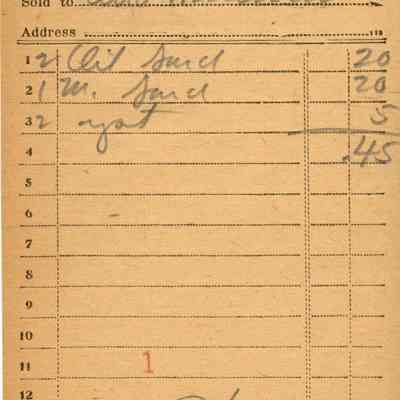 Sold to
Address 19
1 2 Oil Sard 20
2 1 M. Sard 20
3 2 5
4 .45
5
6
7
8
9
10
11 1
12